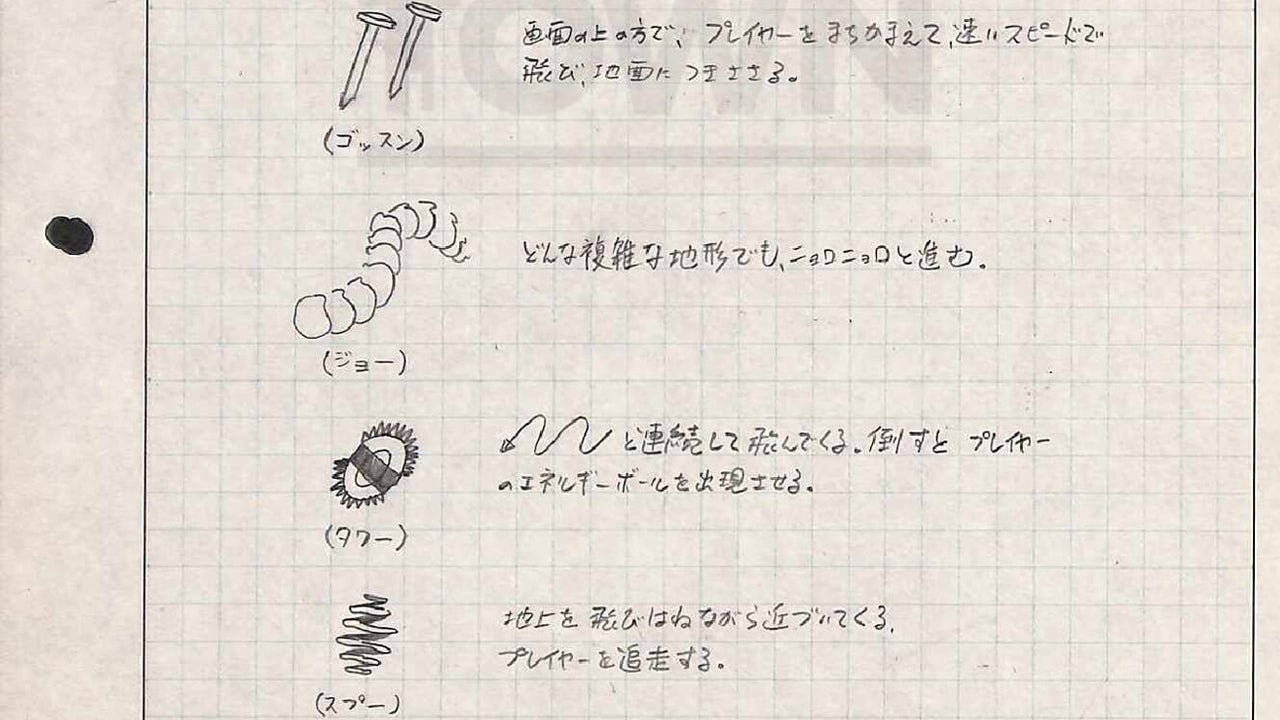 TOWN
画面の上の方で、プレイヤーをまちかまえて、速いスピードで
飛び、地面につきささる。
(ゴッスン)
どんな複雑な地形でも、ニョロニョロと進む。
(ジョー)
と連続して飛んでくる。倒すとプレイヤー
のエネルギーボールを出現させる。
(タワー)
地上を飛びはねながら近づいてくる。
プレイヤーを追走する。
(スプー)